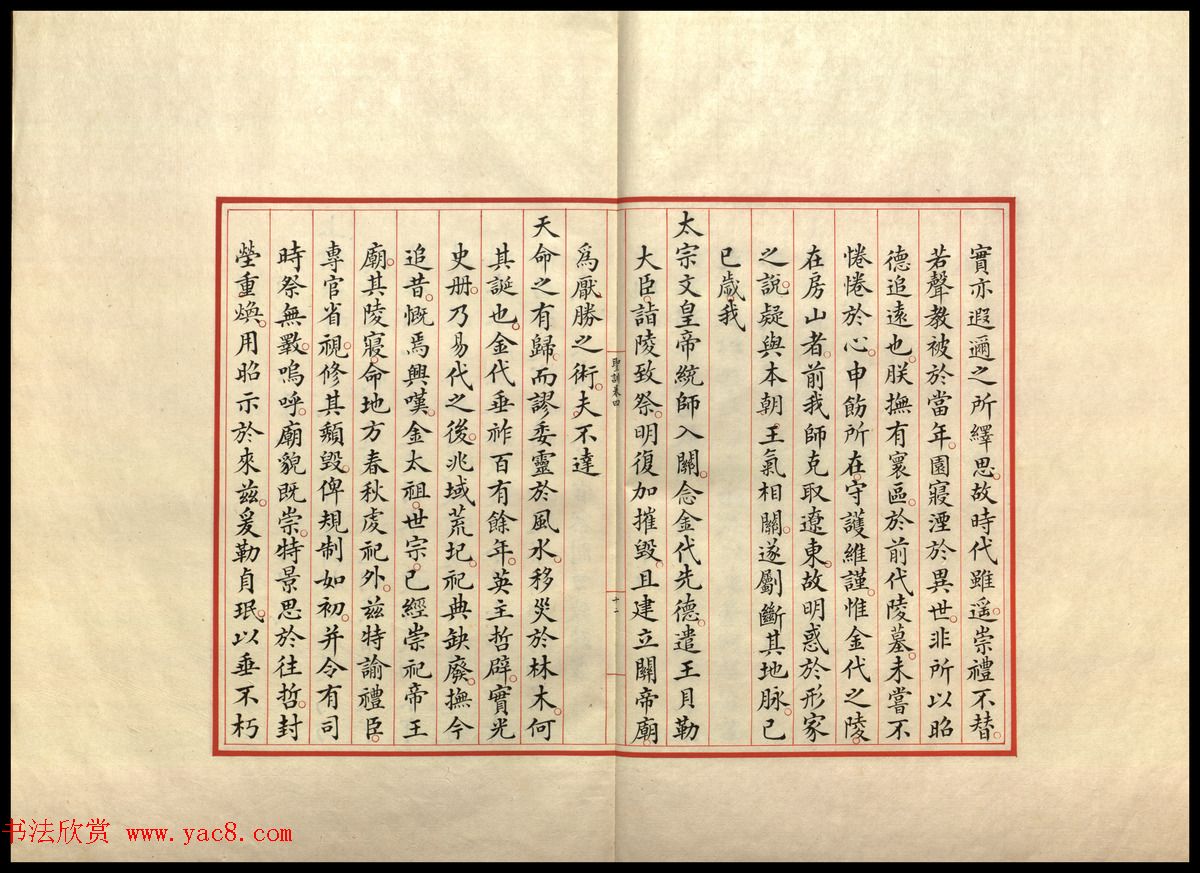 實亦遐邇之所繹思故時代雖遥崇禮不替
若聲教被於當年園寢湮於異世非所以昭
德追遠也朕撫有寰區於前代陵墓未嘗不
惓惓於心申飭所在守護維謹惟金代之陵
在房山者前我師克取遼東故明惑於形家
之說疑與本朝王氣相關遂劚斷其地脉己
巳歲我
太宗文皇帝統師入關念金代先德遣王貝勒
大臣詣陵致祭明復加摧毁且建立關帝廟
聖訓卷四
十一
爲厭勝之術夫不達
天命之有歸而謬委靈於風水移災於林木何
其誕也金代垂祚百有餘年英主哲辟實光
史册乃易代之後兆域荒圮祀典缺廢撫今
追昔慨焉興嘆金太祖世宗已經崇祀帝王
廟其陵寢命地方春秋虔祀外兹特諭禮臣
專官省視修其頹毁俾規制如初并令有司
時祭無斁嗚呼廟貌既崇特景思於往哲封
塋重煥用昭示於來兹爰勒貞珉以垂不朽
书法欣赏 www.yac8.com